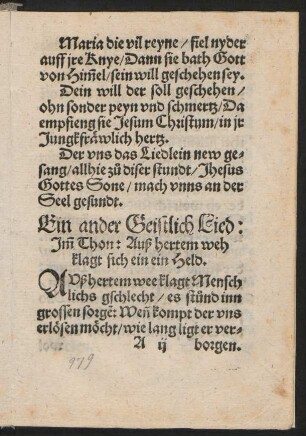 Maria die vil reyne / fiel nyder
auff jre Knye / Dann sie bath Gott
von Him̃el / sein will geschehen sey.
Dein will der soll geschehen /
ohn sonder peyn vnd schmertz / Da
empfieng sie Jesum Christum / in jr
Jungkfräwlich hertz.
Der vns das Liedlein new ge-
sang / allhie zů diser stundt / Jhesus
Gottes Sone / mach vnns an der
Seel gesundt.
Ein ander Geistlich Lied:
Im̃ Thon: Auß hertem weh
klagt sich ein ein Held.
AVß hertem wee klagt Mensch
lichs gschlecht / es stůnd inn
grossen sorgẽ: Weñ kompt der vns
erlösen möcht / wie lang ligt er ver-
A ij borgen.
979